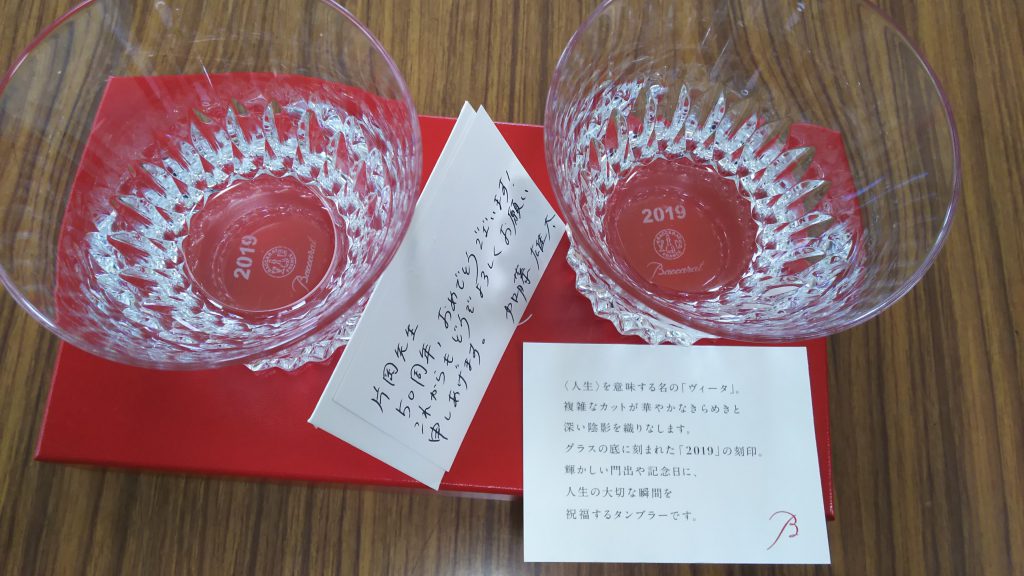 2019
Baccarat
2019
Baccarat
片岡先生
50周年、おめでとうございます!
これからもどうぞよろしくお願い
申しあげます。
雄大
〈人生〉を意味する名の「ヴィータ」。
複雑なカットが華やかなきらめきと
深い陰影を織りなします。
グラスの底に刻まれた「2019」の刻印。
輝かしい門出や記念日に、
人生の大切な瞬間を
祝福するタンブラーです。
B